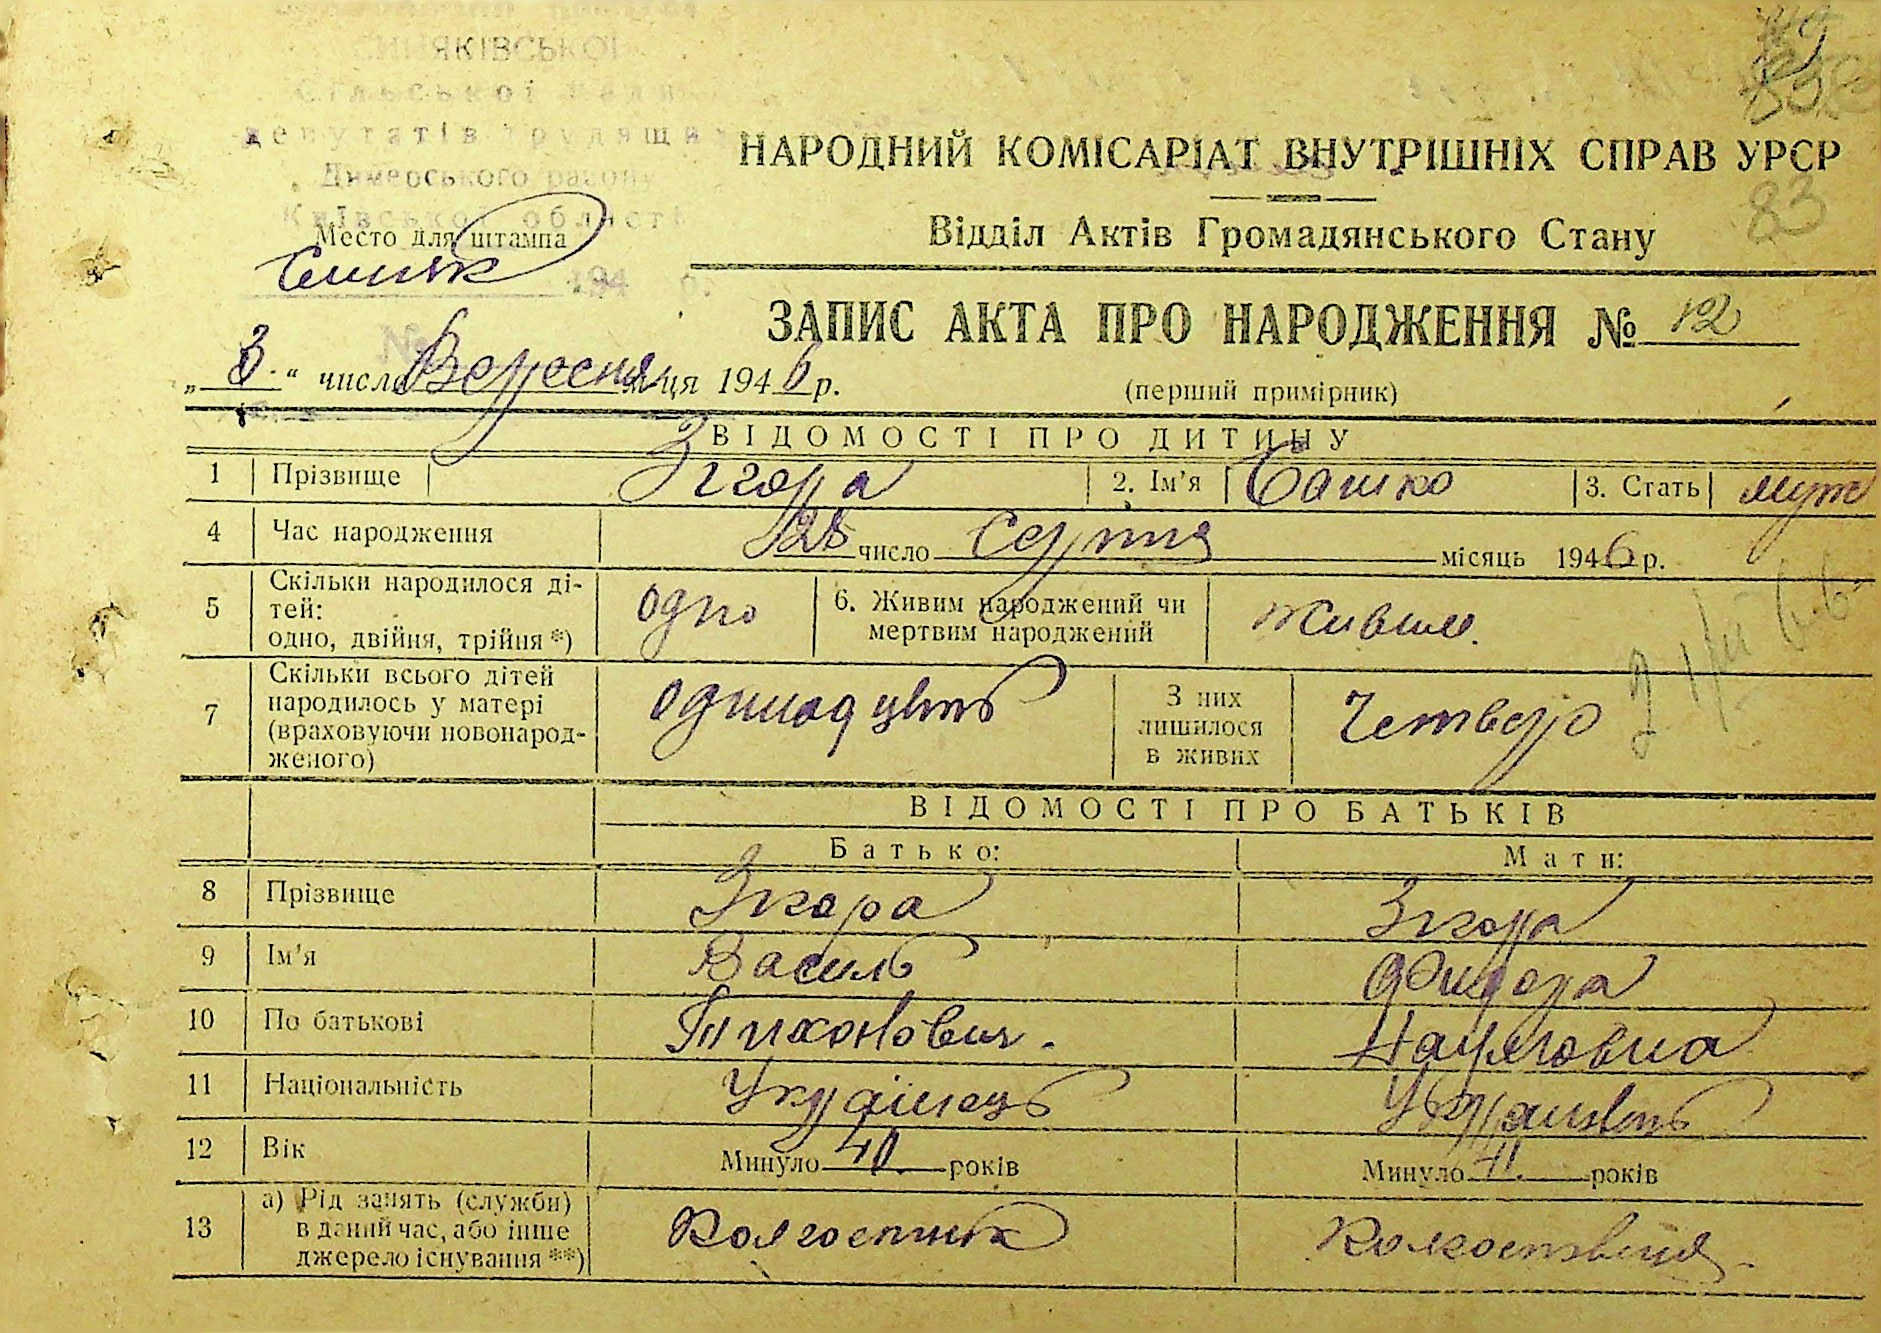 СИНЯКІВСЬКОЇ
Сільської Ради
депутатів трудящих
Димерського району
Київської області
Место для штампа
Синяк 194 р.
№
83
НАРОДНИЙ КОМІСАРІАТ ВНУТРІШНІХ СПРАВ УРСР
Відділ Актів Громадянського Стану
ЗАПИС АКТА ПРО НАРОДЖЕННЯ № 12
„ 3 “ число Вересня м-ця 1946 р.
(перший примірник)
ЗВІДОМОСТІ ПРО ДИТИНУ
1 Прізвище Згора 2. Ім'я Сашко 3. Стать муж
4 Час народження 28 число Серпня місяць 1946 р.
5 Скільки народилося ді-
тей:
одно, двійня, трійня *) одно 6. Живим народжений чи
мертвим народжений живим.
7 Скільки всього дітей
народилось у матері
(враховуючи новонарод-
женого) одинадцять З них
лишилося
в живих Четверо
ВІДОМОСТІ ПРО БАТЬКІВ
Батько: Мати:
8 Прізвище Згора Згора
9 Ім'я Василь Фидора
10 По батькові Тихонович. Наумовна
11 Національність Українець
12 Вік Минуло 40. років Минуло 41. років
13 а) Рід занять (служби)
в даний час, або інше
джерело існування **) Колгоспник Колгоспниця.